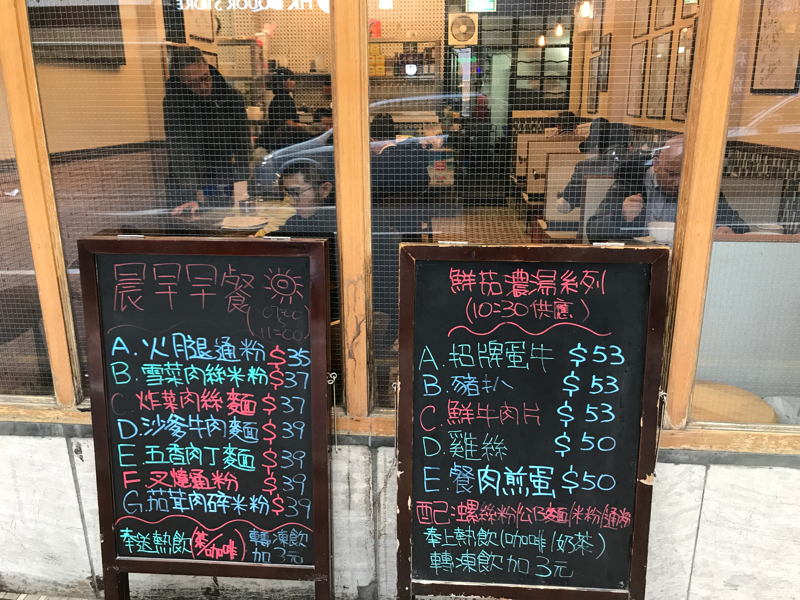 LIQUOR STORE
晨早早餐
07:00
11:00
A. 火腿通粉 $35
B. 雪菜肉絲米粉 $37
C. 炸菜肉絲麵 $37
D. 沙爹牛肉麵 $39
E. 五香肉丁麵 $39
F. 叉燒通粉 $39
G. 茄茸肉碎米粉 $39
奉送熱飲(茶/咖啡) 轉凍飲
加3元
鮮茄濃湯系列
(10:30供應)
A. 招牌蛋牛 $53
B. 豬扒 $53
C. 鮮牛肉片 $53
D. 雞絲 $50
E. 餐肉煎蛋 $50
配:螺絲粉/公仔麵/米粉/通粉
奉上熱飲(咖啡/奶茶)
轉凍飲加3元